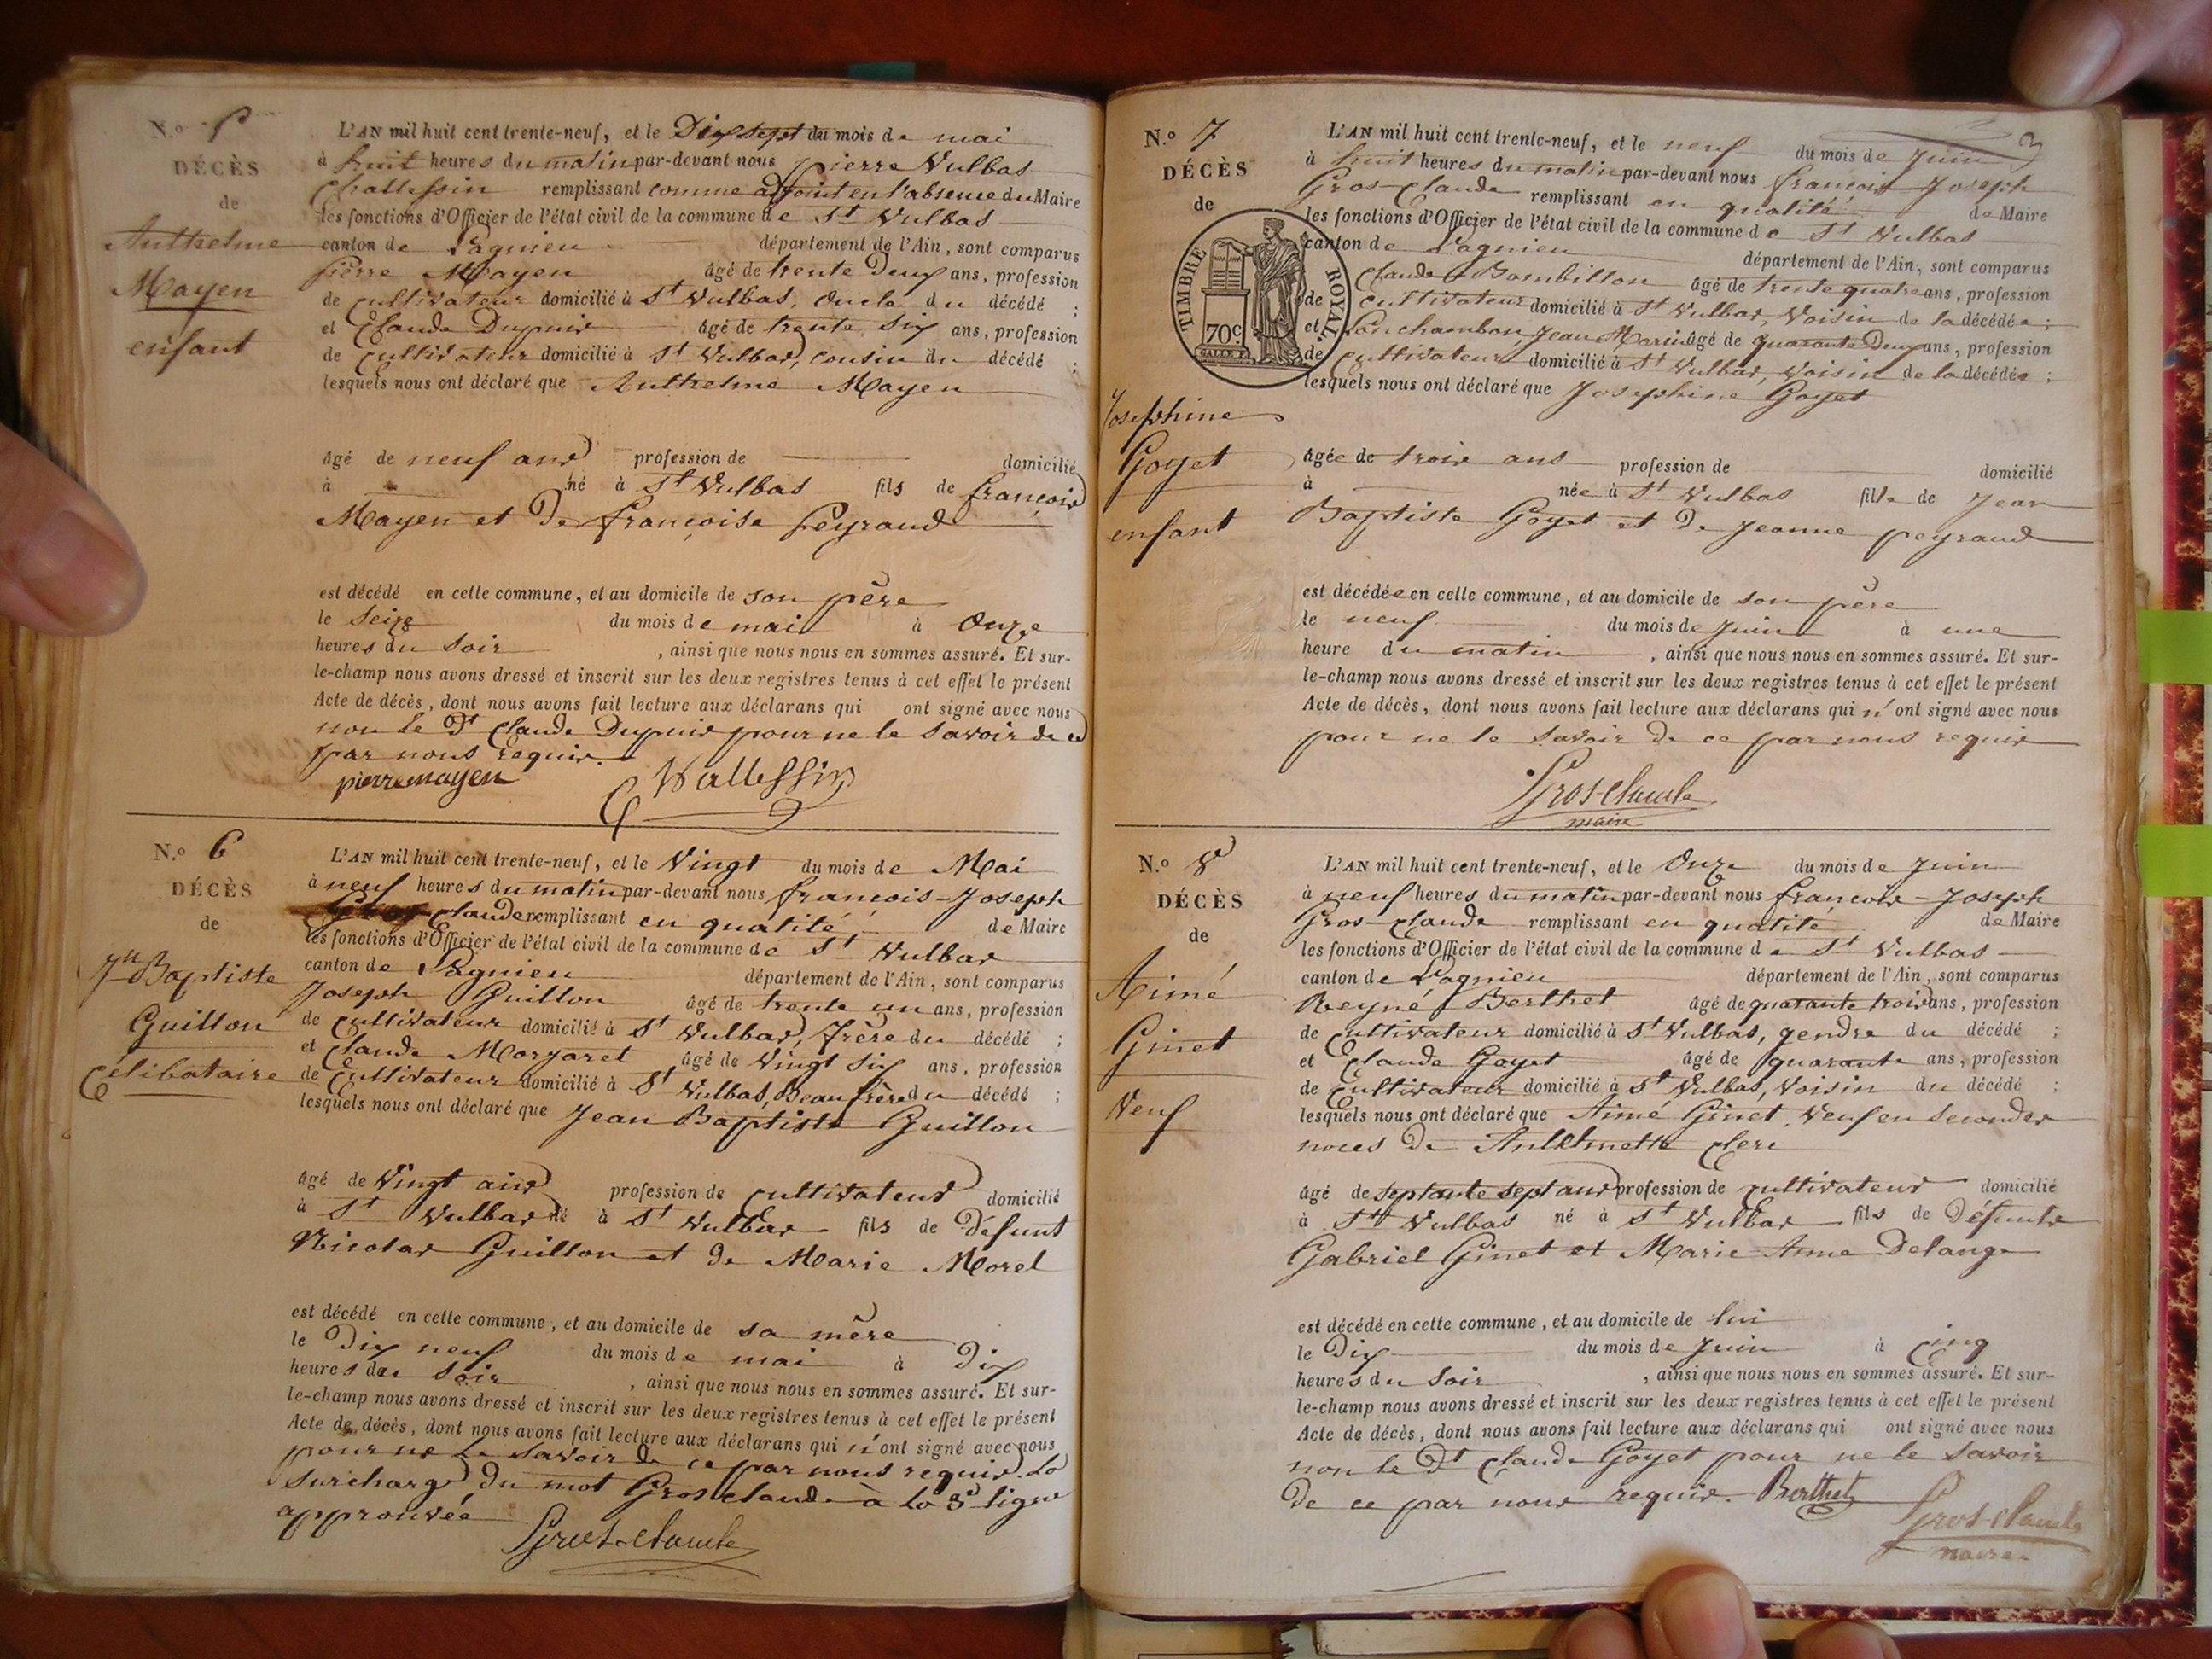 N.o 5
DÉCÈS
de
Anthelme
Mayen
enfant
L'AN mil huit cent trente-neuf, et le Dix sept du mois de mai
à huit heures du matin par-devant nous pierre Vulbas
Challessin remplissant comme adjoint en l'absence du Maire
les fonctions d'Officier de l'état civil de la commune de St Vulbas
canton de Lagnieu département de l'Ain, sont comparus
pierre Mayen âgé de trente Deux ans, profession
de cultivateur domicilié à St Vulbas, oncle du décédé ;
et Claude Dupuis âgé de trente six ans, profession
de cultivateur domicilié à St Vulbas, cousin du décédé ;
lesquels nous ont déclaré que Anthelme Mayen
âgé de neuf ans profession de domicilié
à né à St Vulbas fils de françois
Mayen et De françoise peyraud
est décédé en cette commune, et au domicile de son père
le seize du mois de mai à onze
heures du soir , ainsi que nous nous en sommes assuré. Et sur-
le-champ nous avons dressé et inscrit sur les deux registres tenus à cet effet le présent
Acte de décès, dont nous avons fait lecture aux déclarans qui ont signé avec nous
non le Dt Claude Dupuis pour ne le savoir de ce
par nous requis.
pierre mayen Challessin
N.o 6
DÉCÈS
de
Jn Baptiste
Guillon
Célibataire
L'AN mil huit cent trente-neuf, et le Vingt du mois de Mai
à neuf heures du matin par-devant nous françois-Joseph
Gros-Claude remplissant en qualité de Maire
les fonctions d'Officier de l'état civil de la commune de St Vulbas
canton de Lagnieu département de l'Ain, sont comparus
Joseph Guillon âgé de trente un ans, profession
de cultivateur domicilié à St Vulbas, frère du décédé ;
et Claude Margaret âgé de Vingt six ans, profession
de Cultivateur domicilié à St Vulbas, Beaufrère du décédé ;
lesquels nous ont déclaré que Jean Baptiste Guillon
âgé de Vingt ans profession de Cultivateur domicilié
à St Vulbas né à St Vulbas fils de Défunt
Nicolas Guillon et de Marie Morel
est décédé en cette commune, et au domicile de sa mère
le Dix neuf du mois de mai à Dix
heures du soir , ainsi que nous nous en sommes assuré. Et sur-
le-champ nous avons dressé et inscrit sur les deux registres tenus à cet effet le présent
Acte de décès, dont nous avons fait lecture aux déclarans qui n'ont signé avec nous
pour ne le savoir de ce par nous requis. La
surcharge du mot Gros claude à la 3e ligne
approuvée Gros-claude
N.o 7
DÉCÈS
de
TIMBRE ROYAL.
70c
Josephine
Goyet
enfant
L'AN mil huit cent trente-neuf, et le neuf du mois de Juin
à huit heures du matin par-devant nous françois-Joseph
Gros-Claude remplissant en qualité de Maire
les fonctions d'Officier de l'état civil de la commune de St Vulbas
canton de Lagnieu département de l'Ain, sont comparus
Claude Bombillon âgé de trente quatre ans, profession
de cultivateur domicilié à St Vulbas, Voisin de la décédée ;
et Ponchambon, Jean Marie âgé de quarante Deux ans, profession
de cultivateur domicilié à St Vulbas, Voisin de la décédée ;
lesquels nous ont déclaré que Josephine Goyet
âgée de trois ans profession de domicilié
à née à St Vulbas fille de Jean
Baptiste Goyet et De Jeanne peyraud
est décédée en cette commune, et au domicile de son père
le neuf du mois de Juin à une
heure du matin , ainsi que nous nous en sommes assuré. Et sur-
le-champ nous avons dressé et inscrit sur les deux registres tenus à cet effet le présent
Acte de décès, dont nous avons fait lecture aux déclarans qui n'ont signé avec nous
pour ne le savoir De ce par nous requis
Gros-claude
maire
N.o 8
DÉCÈS
de
Aimé
Ginet
Veuf
L'AN mil huit cent trente-neuf, et le Onze du mois de Juin
à neuf heures du matin par-devant nous françois-Joseph
Gros-Claude remplissant en qualité de Maire
les fonctions d'Officier de l'état civil de la commune de St Vulbas
canton de Lagnieu département de l'Ain, sont comparus
Reyné Berthet âgé de quarante trois ans, profession
de cultivateur domicilié à St Vulbas, gendre du décédé ;
et Claude Goyet âgé de quarante ans, profession
de cultivateur domicilié à St Vulbas, Voisin du décédé ;
lesquels nous ont déclaré que Aimé Ginet, Veuf en secondes
noces De Anthelmette Clere
âgé de septante sept ans profession de cultivateur domicilié
à St Vulbas né à St Vulbas fils de Défunts
Gabriel Ginet et Marie Anne Delange
est décédé en cette commune, et au domicile de lui
le Dix du mois de Juin à cinq
heures du soir , ainsi que nous nous en sommes assuré. Et sur-
le-champ nous avons dressé et inscrit sur les deux registres tenus à cet effet le présent
Acte de décès, dont nous avons fait lecture aux déclarans qui ont signé avec nous
non le Dt Claude Goyet pour ne le savoir
De ce par nous requis. Berthet
Gros-claude
maire